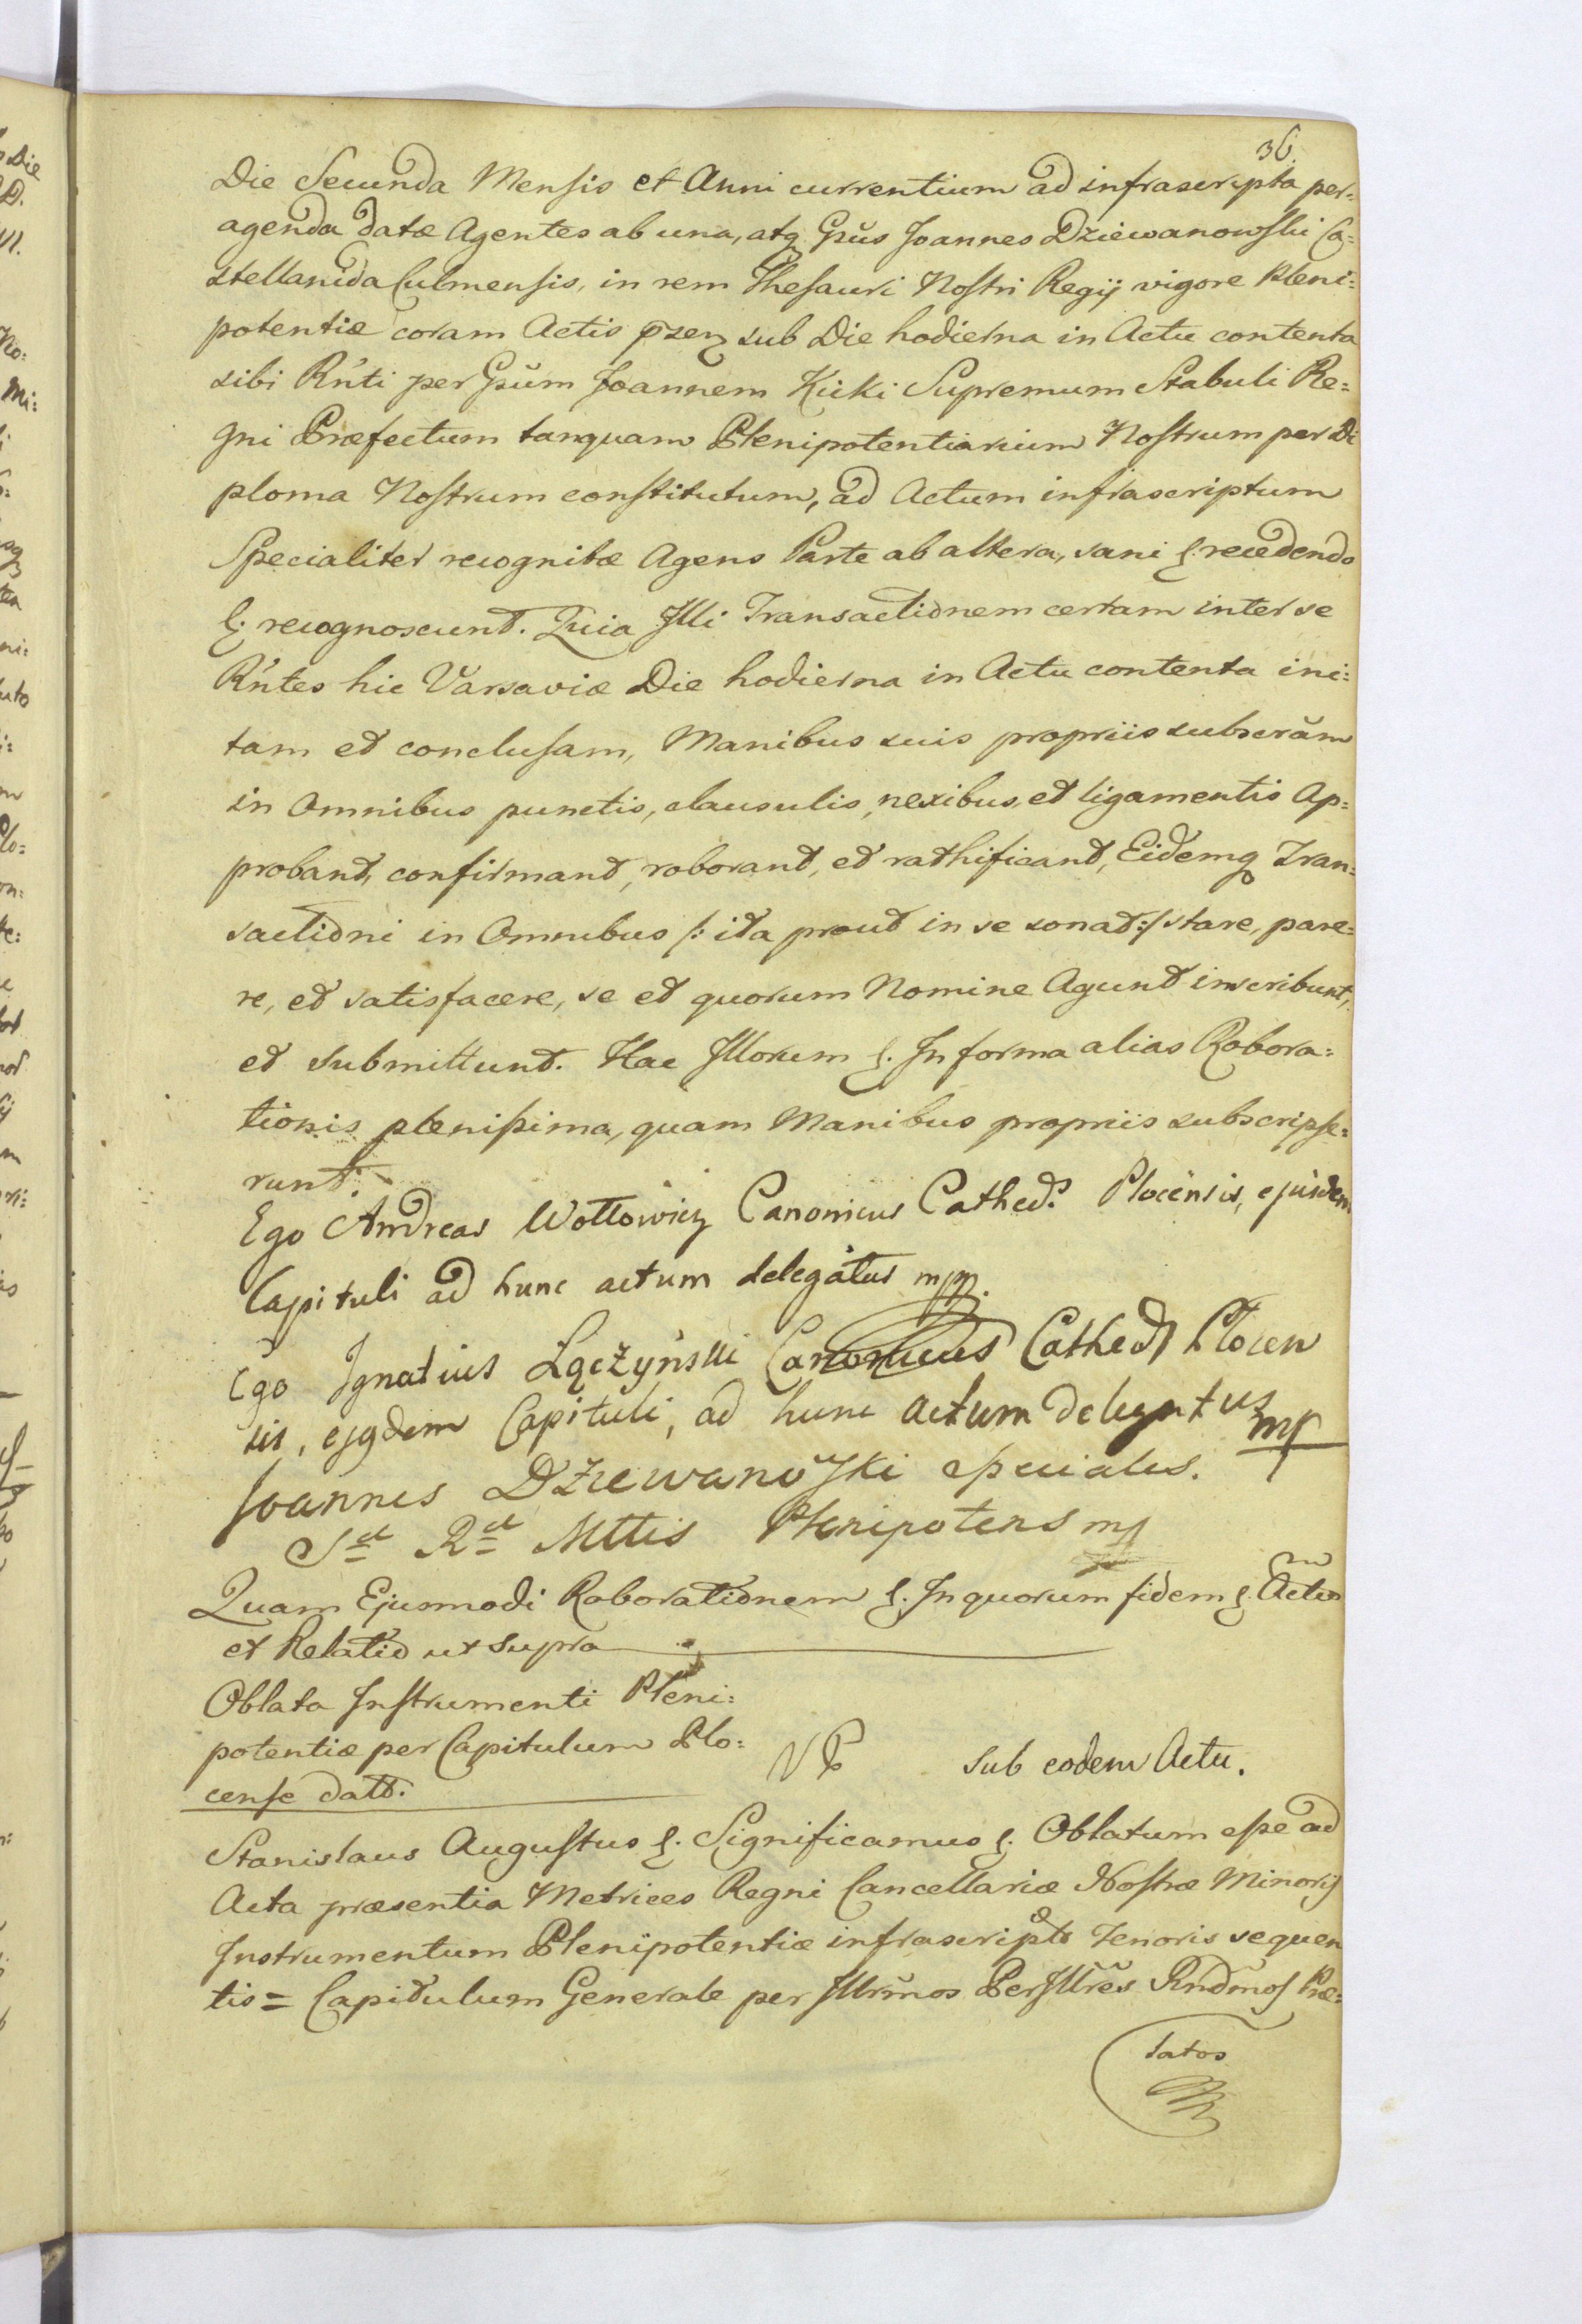 36.
Die Secunda Mensis et Anni currentium ad infrascripta per=
agenda datæ Agentes ab una, atq Gñus Joannes Dziewanowski Ca=
stellanida Culmensis, in rem Thesauri Nostri Regij vigore Pleni=
potentiæ coram Actis p̄sen sub Die hodierna in Actu contenta
sibi Rñti per Gñum Joannem Kicki Supremum Stabuli Re=
gni Præfectum tanquam Plenipotentiarium Nostrum per Di
ploma Nostrum constitutum, ad Actum infrascriptum
Specialiter recognitæ Agens Parte ab altera, sani &. recedendo
&. recognoscunt. Quia Illi Transactionem certam inter se
Rñtes hic Varsaviæ Die hodierna in Actu contenta ini=
tam et conclusam, Manibus suis propriis subscrãm
in Omnibus punctis, clausulis, nexibus, et ligamentis Ap=
probant, confirmant, roborant, et rathificant, Eidemq Tran=
sactioni in Omnibus /: ita prout in se sonat :/ stare, pare=
re, et satisfacere, se et quorum Nomine Agunt inscribunt,
et submittunt. Hac Illorum &. In forma alias Robora=
tionis plenissima, quam Manibus propriis subscripse=
runt.
Ego Andreas Wołłowicz Canonicus Cathed. Plocensis, ejusdem
Capituli ad hunc actum delegatus mpp.
Ego Ignatius Łączyński Canonicus Cathedr Plocen
sis, ejqdem Capituli, ad hunc actum delegatus mp
Joannes Dziewanowski specialis.
Sæ Ræ Mttis Plenipotens mp
Quam Ejusmodi Roborationem &. In quorum fidem &. Actũm
et Relatio ut supra
Oblata Instrumenti Pleni=
potentiæ per Capitulum Plo=
cense dato.
NP sub eodem Actu.
Stanislaus Augustus &. Significamus &. Oblatum esse ad
Acta præsentia Metrices Regni Cancellariæ Nostræ Minoris
Instrumentum Plenipotentiæ infrascriptæ Tenoris sequen
tis = Capitulum Generale per Illrm̃os Perillr̃es Rndm̃os Præ=
latos